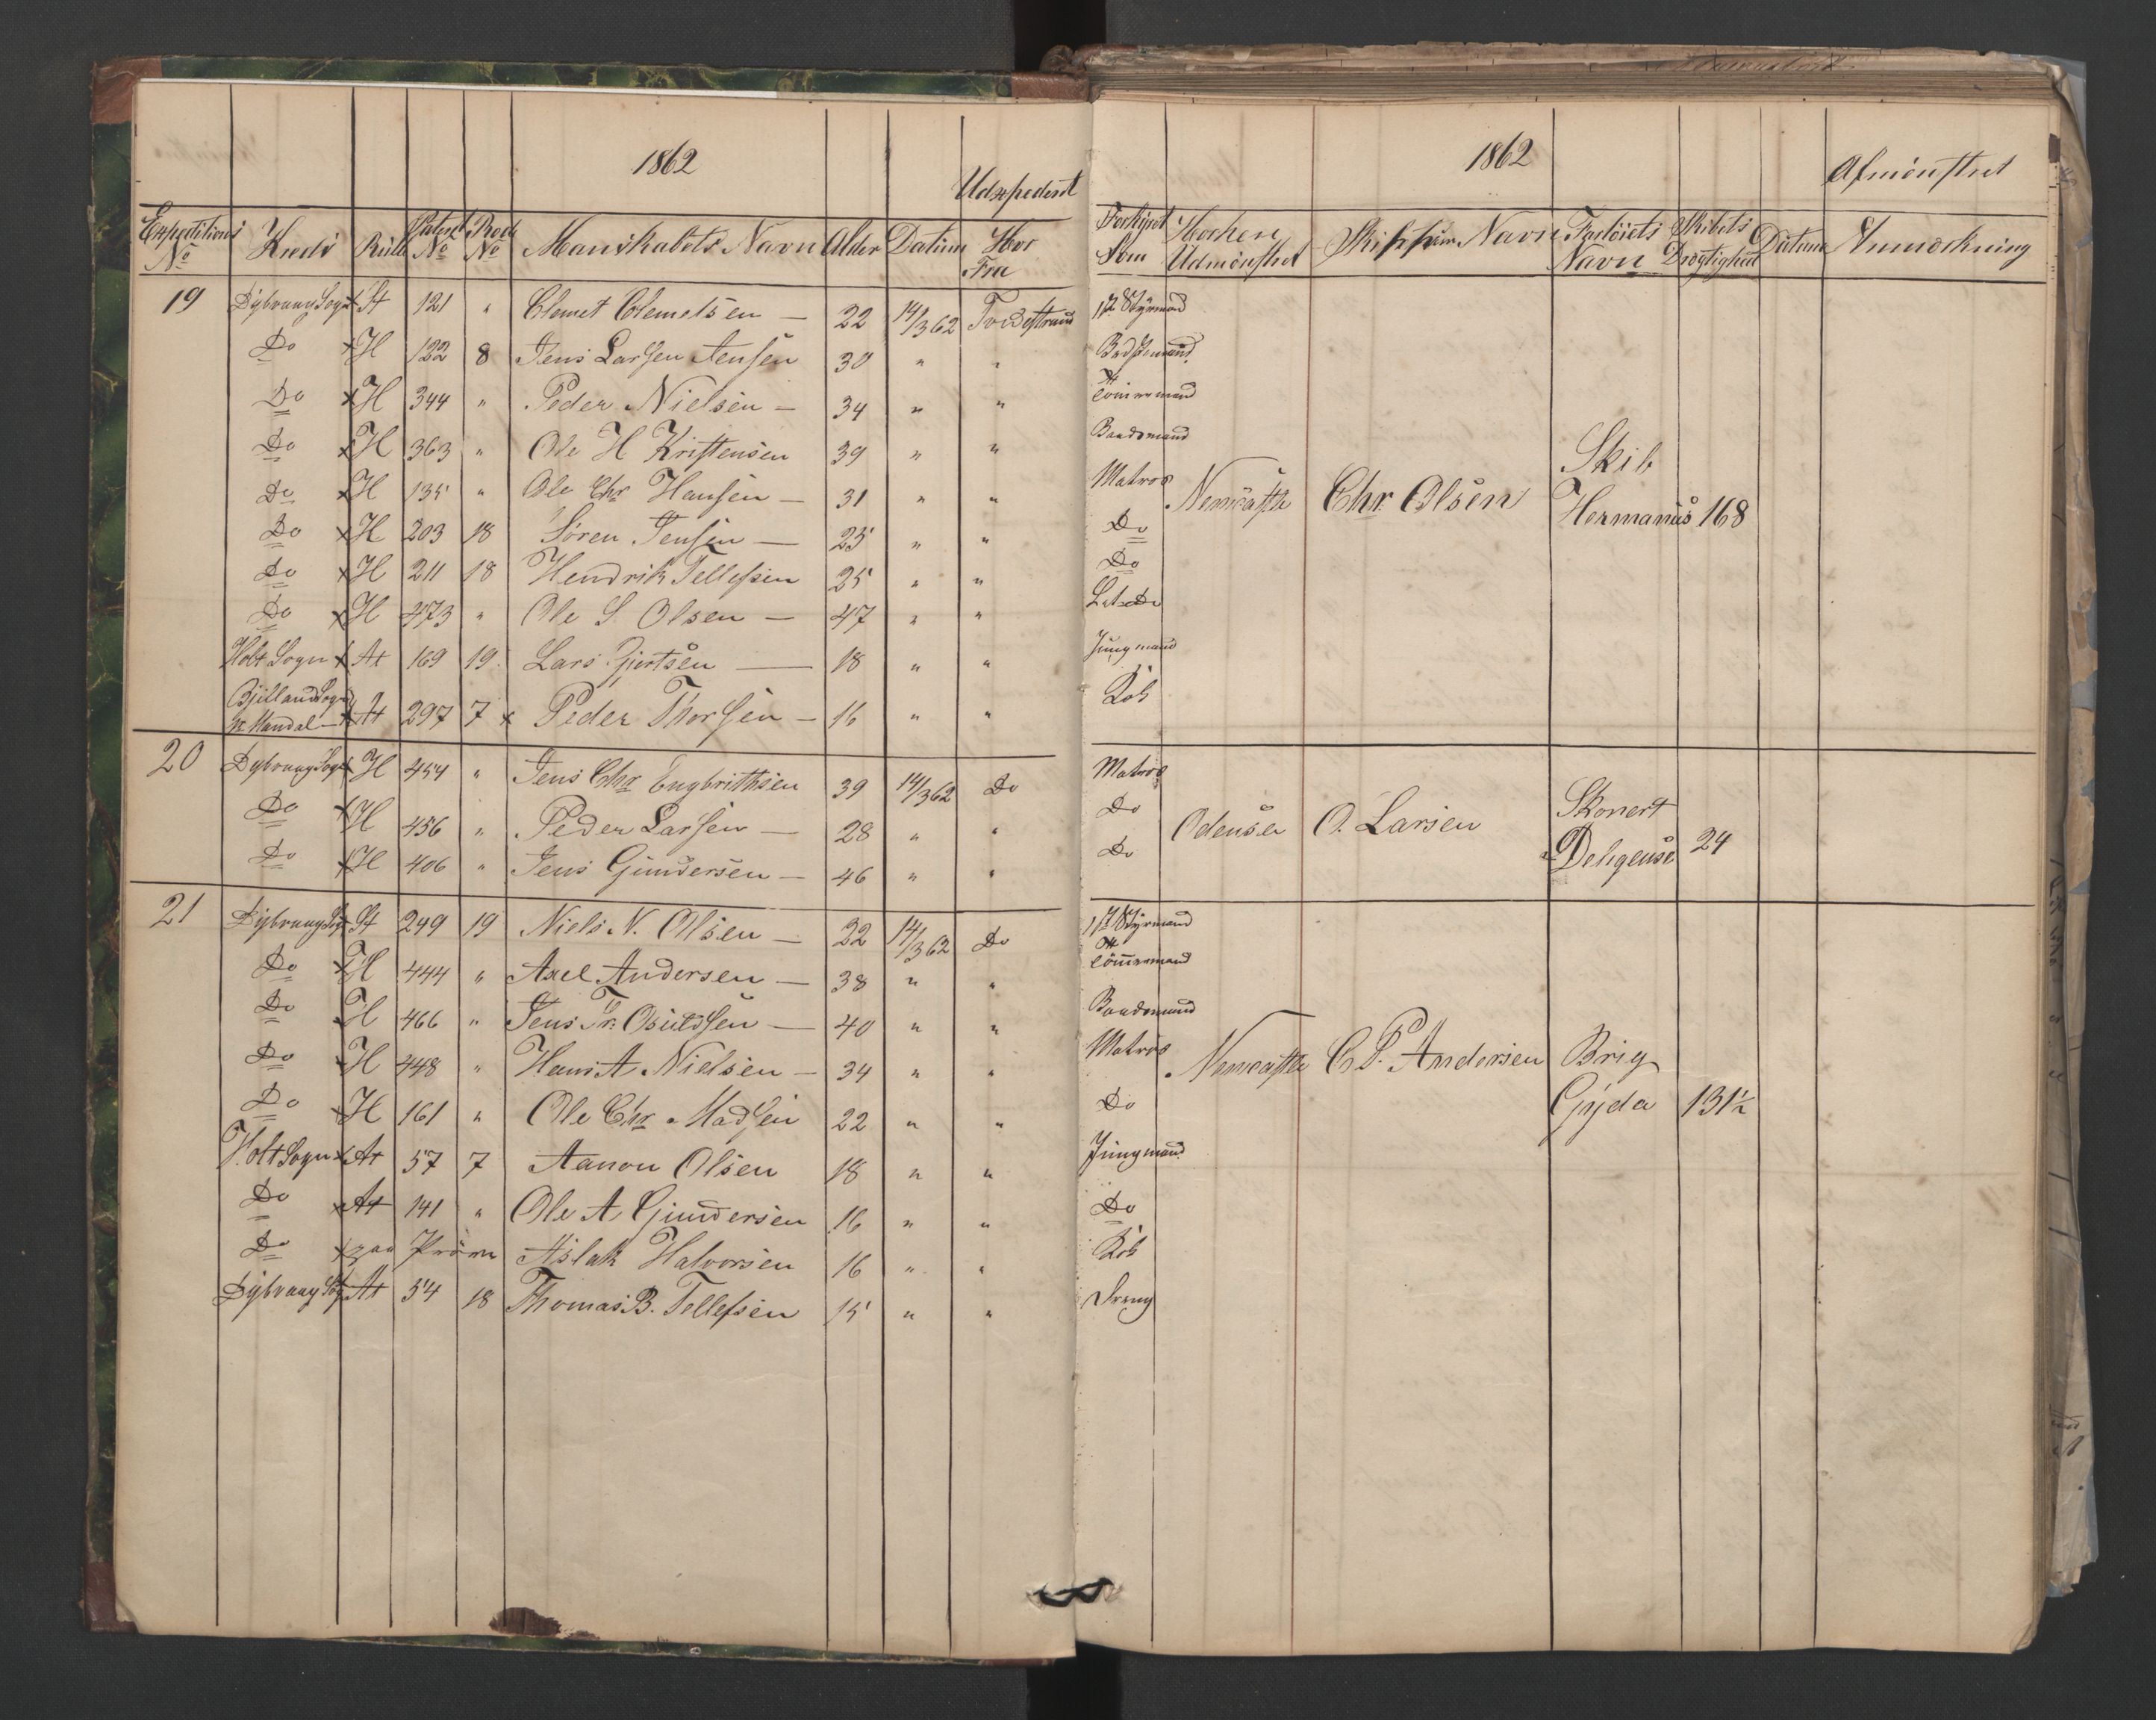 1862
Udexpederet
Expeditions No Kreds Rulle Patent No Rode No Mandskabets Navn Alder Datum Hvor Fra
19 Dybvaag Sogn x St 121 " Clemet Clemetsen — 22 14/3 62 Tvedestrand
Do x H 122 8 Jens Larsen Jensen 30 " "
Do x H 344 " Peder Nielsen — 34 " "
Do x H 363 " Ole H Kristensen 39 " "
Do x H 135 " Ole Chr Hansen — 31 " "
Do x H 203 18 Søren Jensen — 25 " "
Do x H 211 18 Hendrik Tellefsen 25 " "
Do x H 473 " Ole S. Olsen — 47 " "
Holt Sogn x At 169 19 Lars Gjertsen — 18 " "
Bjelland Sogn
Mandal — x At 297 7 x Peder Thorsen — 16 " "
20 Dybvaag Sogn x H 454 " Jens Chr Engbrithsen 39 14/3 62 Do
Do x H 456 " Peder Larsen — 28 " "
Do x H 406 " Jens Gundersen — 46 " "
21 Dybvaag Sogn x St 249 19 Niels N. Olsen — 22 14/3 62 Do
Do x H 444 " Axel Andersen — 38 " "
Do x H 466 " Jens Tr. — 40 " "
Do x H 448 " Hans A Nielsen — 34 " "
Do x H 161 " Ole Chr Madsen 22 " "
Holt Sogn x At 57 7 Aanon Olsen 18 " "
Do x At 141 " Ole A Gundersen 16 " "
Do x paa Prøve Aslak Halvorsen 16 " "
Dybvaag Sogn At 54 18 Thomas B. Tellefsen 15 " "
1862
Afmønstret
Forhyret Som Hvorhen Udmønstret Skipperens Navn Fartøiets Navn Skibets Drægtighed Datum Anmærkning
1ste Styrmand
Baadsmand
Tømmermand
Baadsmand
Matros Newcastle Chr. Olsen Skib
Hermanus 168
Do
Do
Letm
Jungmand
Kok
Matros
Do Odense O. Larsen Skonert
Do Deligense 24
1ste Styrmand
Tømmermand
Baadsmand
Matros Newcastle C P. Andersen Brig
Do Gyda 131½
Jungmand
Do
Kok
Dreng